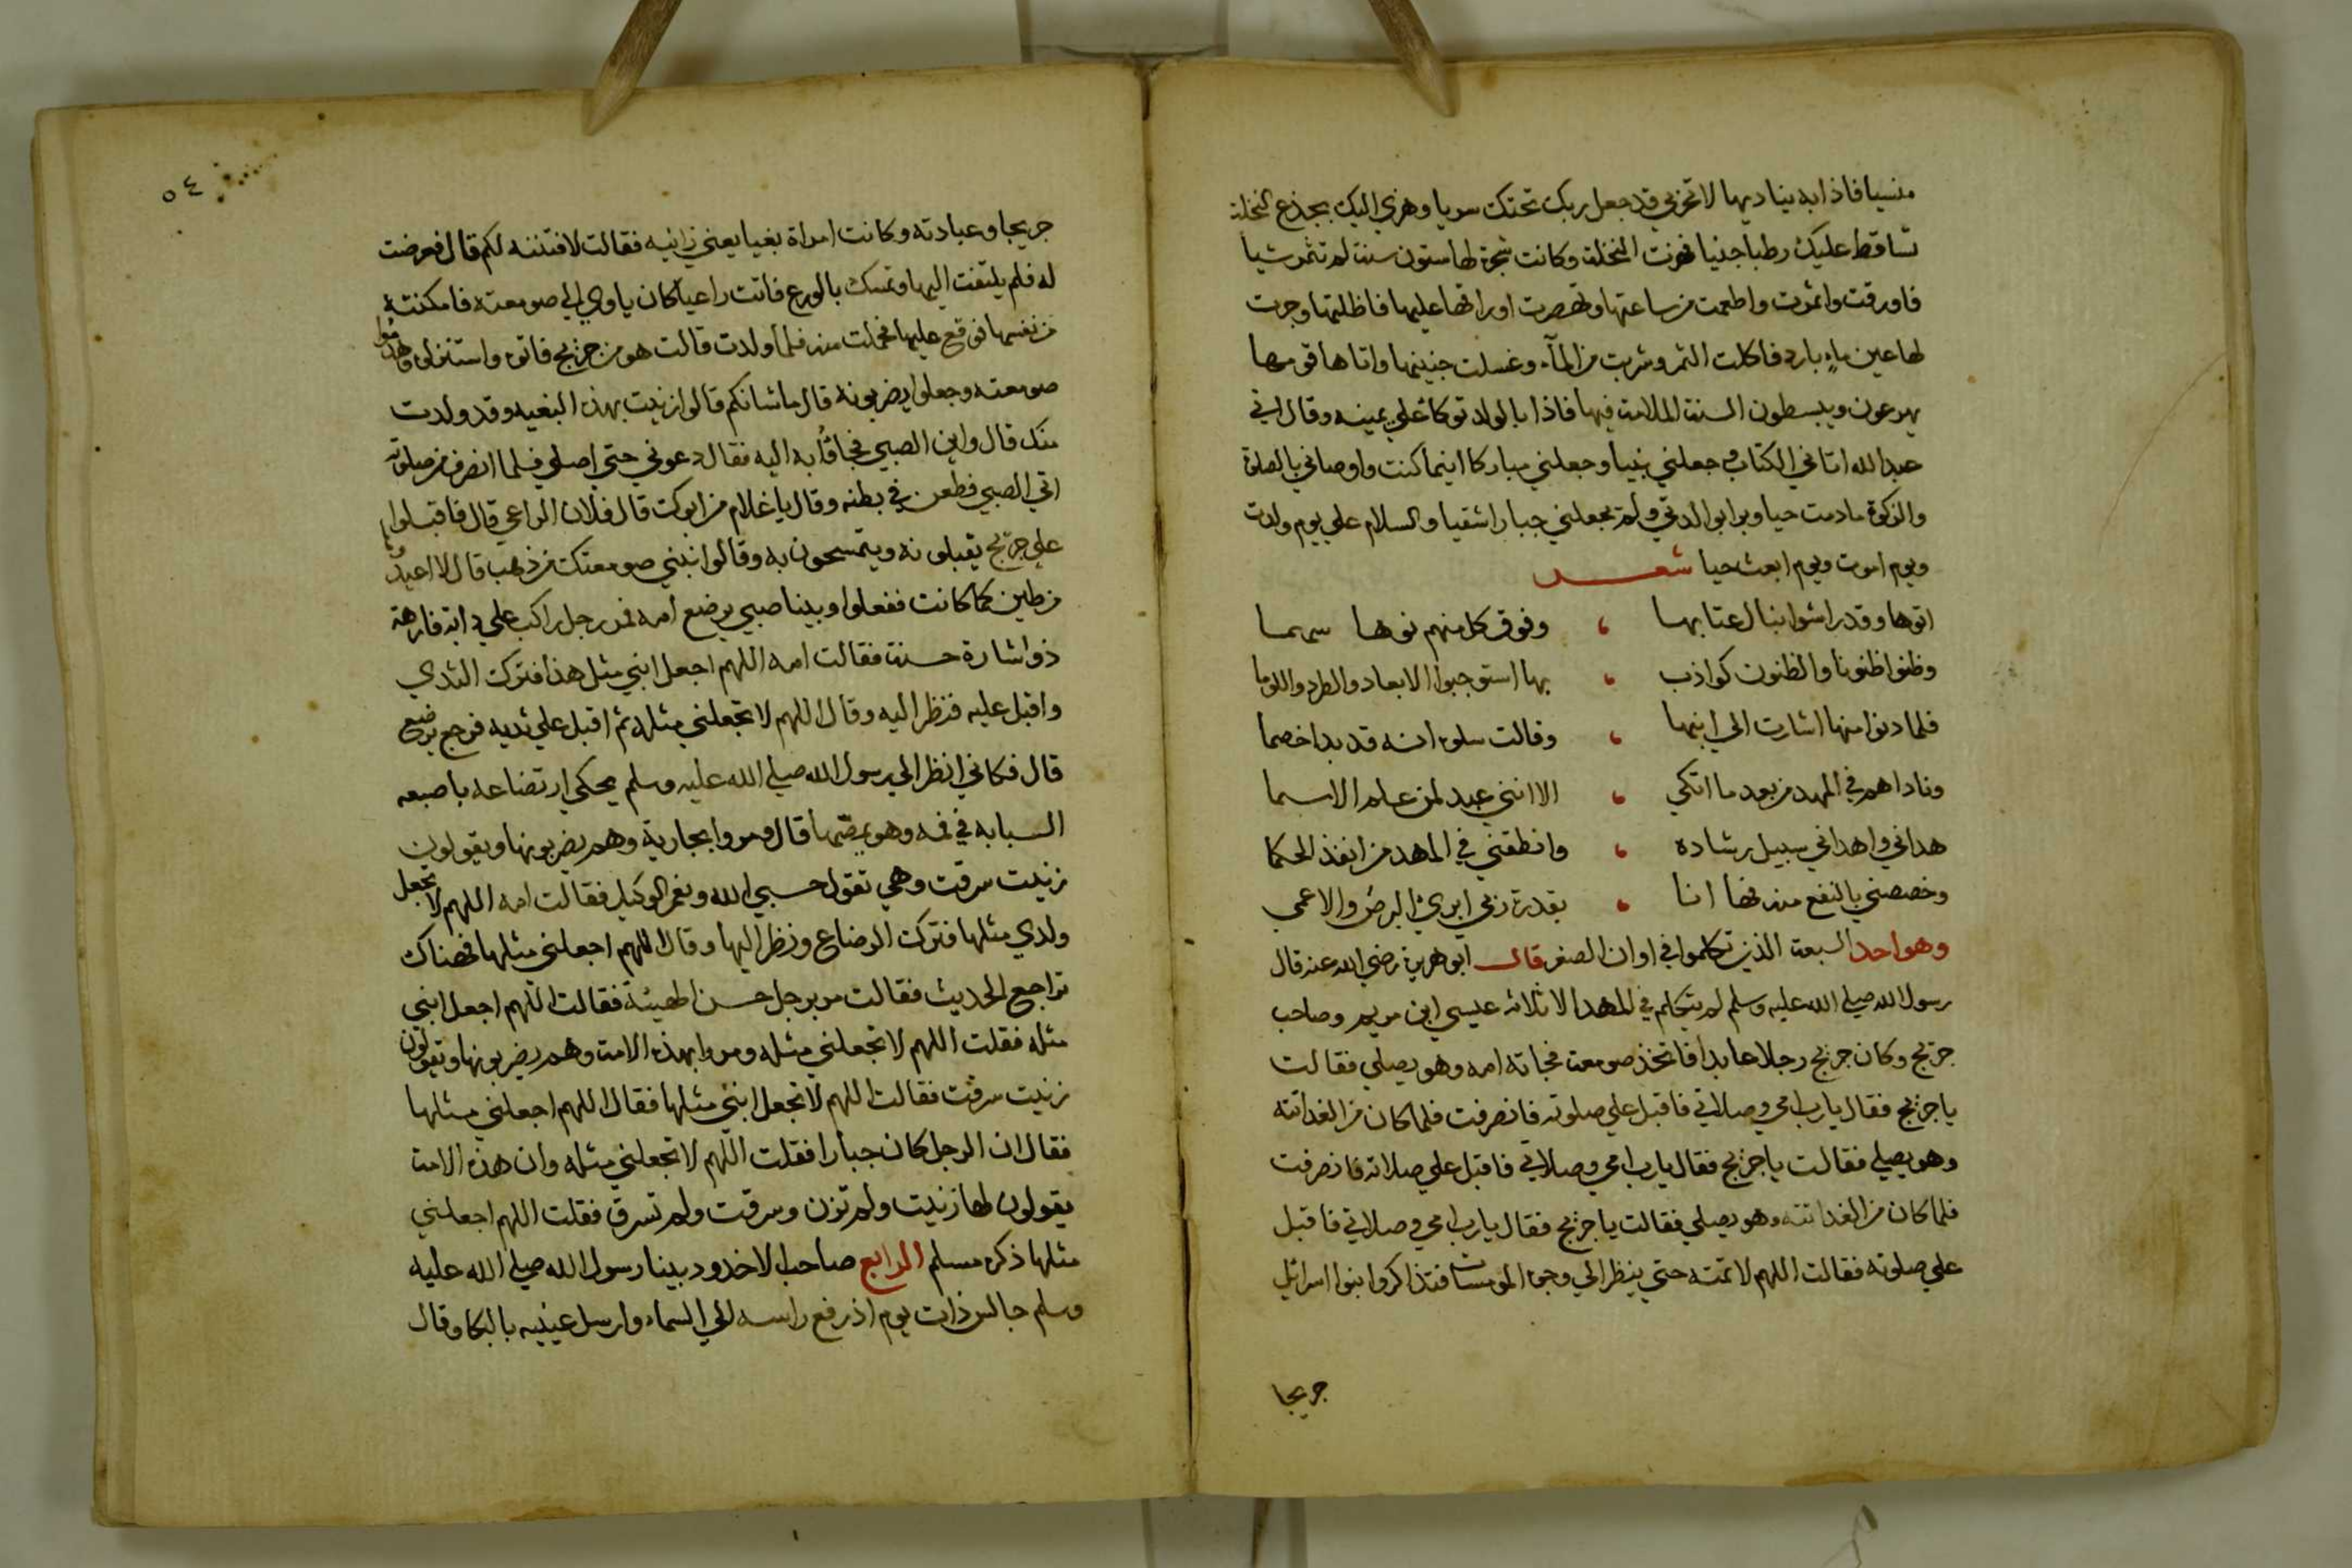 منسيا فاذا به يناديها لا تحزني قد جعل ربك تحتك سريا وهزي اليك بجذع النخلة
تساقط عليك رطبا جنيا فهزت النخلة وكانت شجرة لها ستون سنة لم تثمر شيا
فاورقت واثمرت واطعمت من ساعتها وتهصرت اوراقها عليها فاظلتها وجرت
لها عين ماء بارد فاكلت الثمر وشربت من المآء وغسلت جنينها واتاها قومها
يهرعون ويبسطون السنة الملامة فيها فاذا بالولد توكا علي يمينه وقال اني
عبد الله اتاني الكتاب وجعلني نبيا وجعلني مباركا اينما كنت واوصاني بالصلوة
والزكوة ما دمت حيا وبرا بوالدتي ولم يجعلني جبارا شقيا والسلام علي يوم ولدت
ويوم اموت ويوم ابعث حيا شعر
اتوها وقد راشوا نبال عتابها ، وفوق كل منهم نوها سهما
وظنوا ظنونا والظنون كواذب ، بها استوجبوا الابعاد والطرد واللوما
فلما دنوا منها اشارت الي ابنها ، وقالت سلوه انه قد بدا خصما
وناداهم في المهد من بعد ما اتكي ، الا انني عبد لمن علم الاسما
هداني واهداني سبيل رشاده ، وانطقني في المهد من انفذ الحكما
وخصصني بالنفع منه فها انا ، بقدرة ربي ابري البرص والاعمي
وهو احد السبعة الذين تكلموا في اوان الصغر قال ابو هريرة رضي الله عنه قال
رسول الله صلي الله عليه وسلم لم يتكلم في المهد الا ثلاثه عيسي ابن مريم وصاحب
جريج وكان جريج رجلا عابدا فاتخذ صومعة فجاته امه وهو يصلي فقالت
يا جريج فقال يا رب امي وصلاتي فاقبل علي صلوته فانصرفت فلما كان من الغد اتته
وهو يصلي فقالت يا جريج فقال يا رب امي وصلاتي فاقبل علي صلاته فانصرفت
فلما كان من الغد اتته وهو يصلي فقالت يا جريج فقال يا رب امي وصلاتي فاقبل
علي صلوته فقالت اللهم لا تمته حتي ينظر الي وجوه المومسات فتذاكروا بنوا اسرائيل
جريجا
٥٤
جريجا وعبادته وكانت امراة بغيا يعني زانيه فقالت لافتننه لكم قال فعرضت
له فلم يلتفت اليها وتمسك بالورع فاتت راعيا كان ياوي الي صومعته فامكنته
من نفسها فوقع عليها فحملت منه فلما ولدت قالت هو من جريج فاتوه واستنزلوه وهدموا
صومعته وجعلوا يضربونه قال ما شانكم قالوا زنيت بهذه البغيه وقد ولدت
منك قال واين الصبي فجاؤا به اليه فقال دعوني حتي اصلي فلما انصرف من صلوته
اتي الصبي فطعن في بطنه وقال يا غلام من ابوك قال فلان الراعي قال فاقبلوا
علي جريج يقبلونه ويتمسحون به وقالوا نبني صومعتك من ذهب قال لا اعيدوها
من طين كما كانت ففعلوا وبينا صبي يرضع امه فمر رجل راكب علي دابة فارهة
ذو اشارة حسنة فقالت امه اللهم اجعل ابني مثل هذا فترك الثدي
واقبل عليه فنظر اليه وقال اللهم لا تجعلني مثله ثم اقبل علي ثديه فرجع يرضع
قال فكاني انظر الي رسول الله صلي الله عليه وسلم يحكي ارتضاعه باصبعه
السبابه في فمه وهو يمصها قال ومروا بجارية وهم يضربونها ويقولون
زنيت سرقت وهي تقول حسبي الله ونعم الوكيل فقالت امه اللهم لا تجعل
ولدي مثلها فترك الرضاع ونظر اليها وقال اللهم اجعلني مثلها فهناك
تراجع الحديث فقالت مر برجل حسن الهيئة فقالت اللهم اجعل ابني
مثله فقلت اللهم لا تجعلني مثله ومروا بهذه الامة وهم يضربونها ويقولون
زنيت سرقت فقالت اللهم لا تجعل ابني مثلها فقال اللهم اجعلني مثلها
فقال ان الرجل كان جبارا فقلت اللهم لا تجعلني مثله وان هذه الامة
يقولون لها زنيت ولم تزن وسرقت ولم تسرق فقلت اللهم اجعلني
مثلها ذكره مسلم الرابع صاحب الاخدود بينا رسول الله صلي الله عليه
وسلم جالس ذات يوم اذ رفع راسه الي السماء وارسل عينيه بالبكا وقال